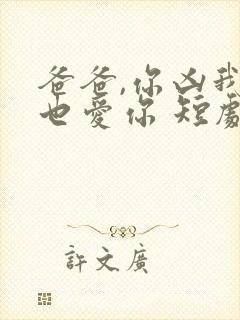 爸爸,你凶我
也愛你 短劇
許文廣